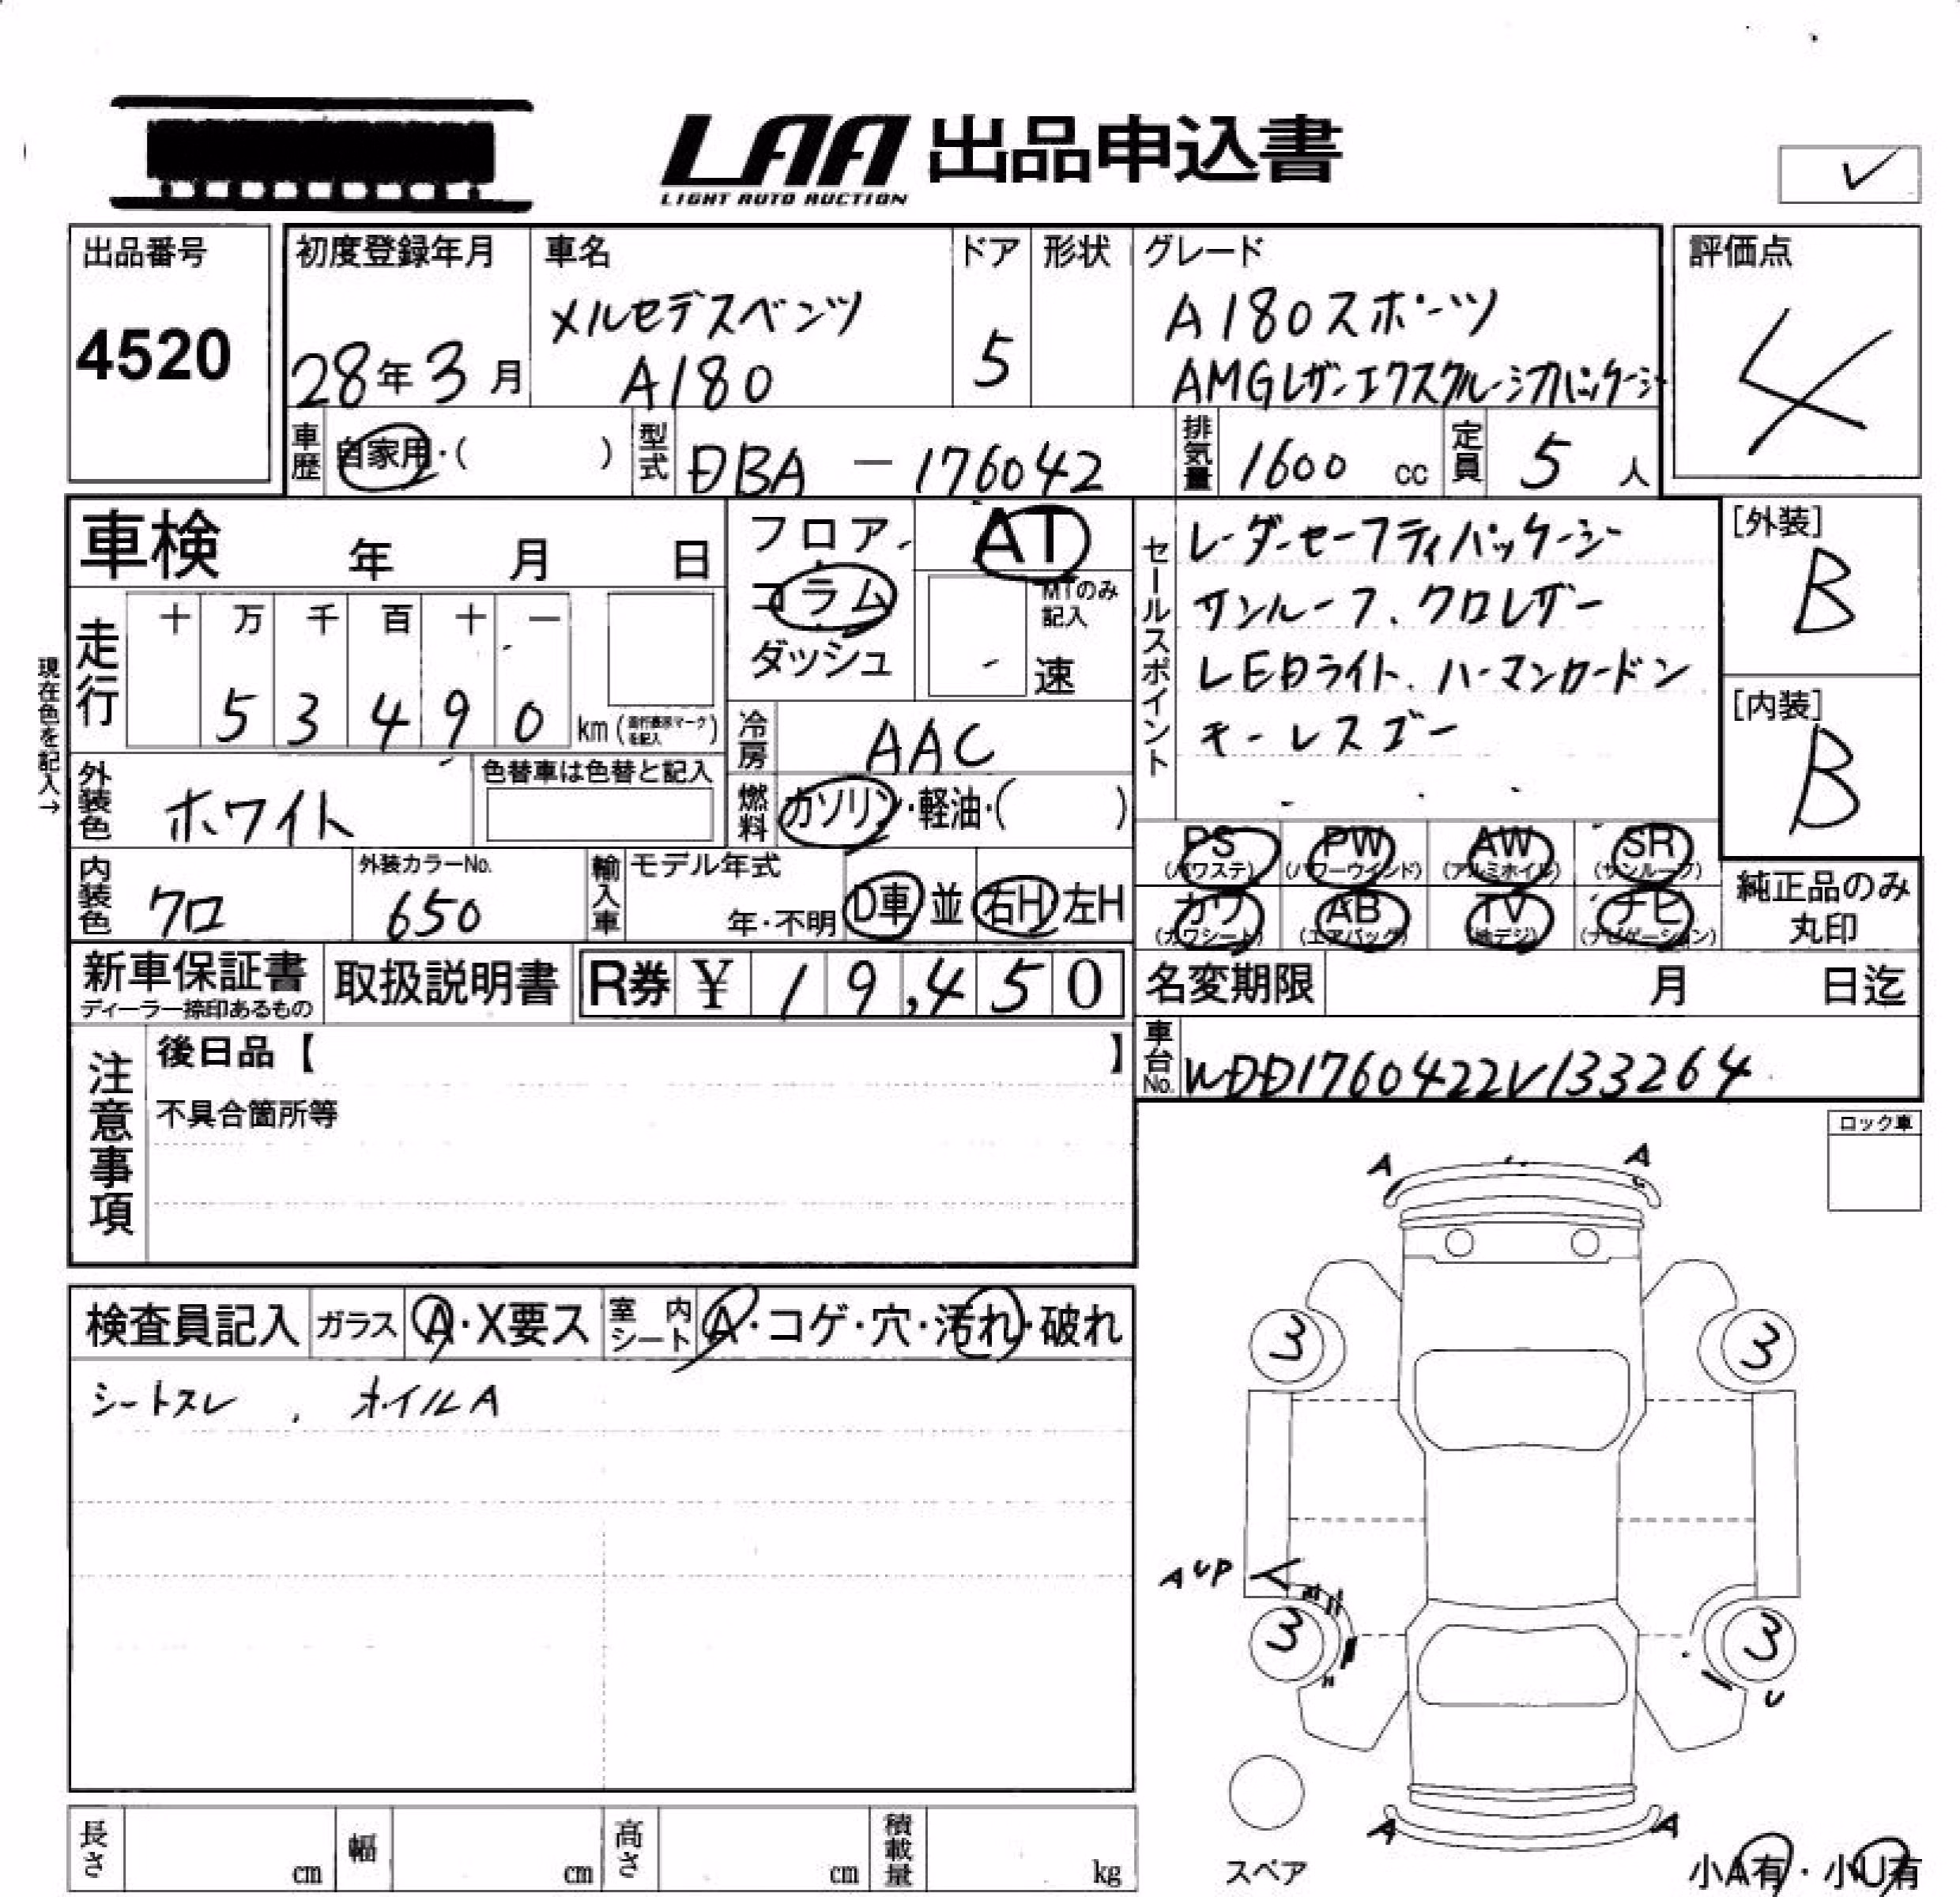 LAA 出品申込書
LIGHT AUTO AUCTION
出品番号
4520
初度登録年月
28年3月
車名
メルセデスベンツ
A180
ドア
5
形状
グレード
A180スポーツ
AMGレザーエクスクルーシブパッケージ
評価点
4
車歴 自家用・( )
型式 DBA-176042
排気量 1600 cc
定員 5 人
車検 年 月 日
フロア
コラム
ダッシュ
AT
MTのみ
記入
速
現在色を記入→
走行
十 万 千 百 十 一
5 3 4 9 0 km
冷房 AAC
燃料 ガソリン・軽油・( )
外装色 ホワイト
色替車は色替と記入
内装色 クロ
外装カラーNo.
650
輸入車
モデル年式
年・不明
D車 並 右H 左H
セールスポイント
レーダーセーフティパッケージ
サンルーフ、クロレザー
LEDライト、ハーマンカードン
キーレスゴー
[外装]
B
[内装]
B
PS (パワステ) PW (パワーウインド) AW (アルミホイル) SR (サンルーフ)
カワ (カワシート) AB (エアバッグ) TV (地デジ) ナビ (ナビゲーション)
純正品のみ
丸印
新車保証書
ディーラー捺印あるもの
取扱説明書
R券 ¥ 19,450
名変期限 月 日迄
車台No. WDD1760422V133264
注意事項
後日品【 】
不具合箇所等
ロック車
検査員記入 ガラス A・X要ス 室内シート A・コゲ・穴・汚れ・破れ
シートスレ 、 ホイルA
A A
3 3
AUP
3 3
U
A A
スペア
小A有・小U有
長さ cm 幅 cm 高さ cm 積載量 kg